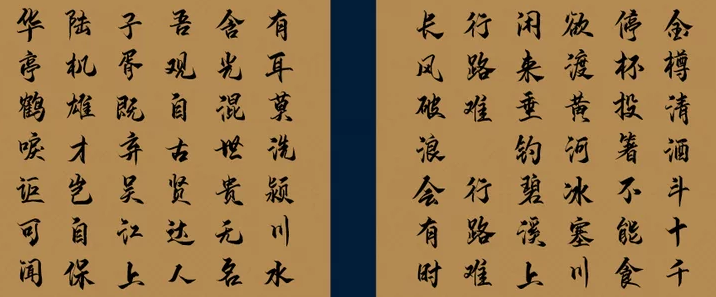 金樽清酒斗十千
停杯投箸不能食
欲渡黄河冰塞川
闲来垂钓碧溪上
行路难 行路难
长风破浪会有时
有耳莫洗颍川水
含光混世贵无名
吾观自古贤达人
子胥既弃吴江上
陆机雄才岂自保
华亭鹤唳讵可闻